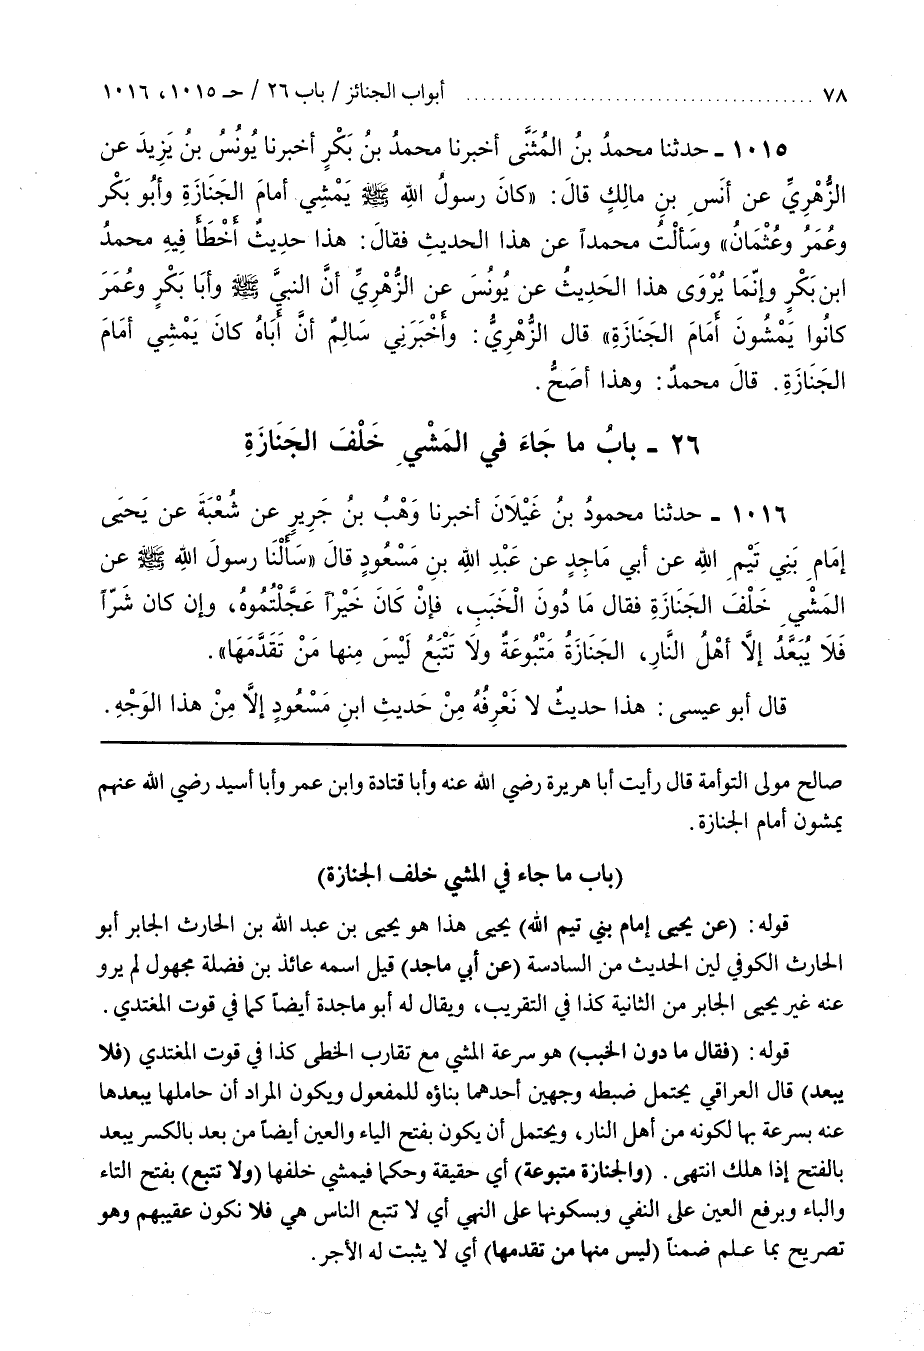 ٧٨ ........................................ أبواب الجنائز / باب ٢٦ / حـ ١٠١٥، ١٠١٦
١٠١٥ ـ حدثنا محمدُ بنُ المُثَنَّى أخبرنا محمدُ بنُ بَكْرٍ أخبرنا يُونُسُ بنُ يَزِيدَ عن
الزُّهْرِيِّ عن أنَسِ بنِ مالِكٍ قالَ: «كانَ رسولُ اللهِ ﷺ يَمْشِي أمامَ الجَنَازَةِ وأبُو بَكْر
وعُمَرُ وعُثْمَانُ» وسَألْتُ محمداً عن هذا الحديثِ فقالَ: هذا حديثٌ أَخْطَأَ فِيهِ محمدُ
ابن بَكْرٍ وإنّمَا يُرْوَى هذا الحَدِيثُ عن يُونُسَ عن الزُّهْرِيِّ أنَّ النبيَّ ﷺ وأبَا بَكْرٍ وعُمَرَ
كانُوا يَمْشُونَ أَمَامَ الجَنَازَةِ» قال الزُّهْرِيُّ: وأَخْبَرَنِي سَالِمٌ أنَّ أَبَاهُ كانَ يَمْشِي أمَامَ
الجَنَازَةِ. قالَ محمدٌ: وهذا أصَحُّ.
٢٦ ـ بابُ ما جَاءَ في المَشْيِ خَلْفَ الجَنَازَةِ
١٠١٦ ـ حدثنا محمودُ بنُ غَيْلَانَ أخبرنا وَهْبُ بنُ جَرِيرٍ عن شُعْبَةَ عن يَحيَى
إمَامِ بَنِي تَيْمِ اللهِ عن أبي مَاجِدٍ عن عَبْدِ اللهِ بنِ مَسْعُودٍ قالَ «سَألْنَا رسولَ اللهِ ﷺ عن
المَشْيِ خَلْفَ الجَنَازَةِ فقال مَا دُونَ الْخَبَبِ، فإنْ كَانَ خَيْراً عَجَّلْتُمُوهُ، وإن كان شَرّاً
فَلَا يُبَعَّدُ إلَّا أهْلُ النَّارِ، الجَنَازَةُ مَتْبُوعَةٌ ولَا تَتْبَعُ لَيْسَ مِنها مَنْ تَقَدَّمَهَا».
قال أبو عيسى: هذا حديثٌ لا نَعْرِفُهُ مِنْ حَديثِ ابنِ مَسْعُودٍ إلَّا مِنْ هذا الوَجْهِ.
صالح مولى التوأمة قال رأيت أبا هريرة رضي الله عنه وأبا قتادة وابن عمر وأبا أسيد رضي الله عنهم
يمشون أمام الجنازة.
(باب ما جاء في المشي خلف الجنازة)
قوله: (عن يحيى إمام بني تيم الله) يحيى هذا هو يحيى بن عبد الله بن الحارث الجابر أبو
الحارث الكوفي لين الحديث من السادسة (عن أبي ماجد) قيل اسمه عائذ بن فضلة مجهول لم يرو
عنه غير يحيى الجابر من الثانية كذا في التقريب، ويقال له أبو ماجدة أيضاً كما في قوت المغتدي.
قوله: (فقال ما دون الخبب) هو سرعة المشي مع تقارب الخطى كذا في قوت المغتدي (فلا
يبعد) قال العراقي يحتمل ضبطه وجهين أحدهما بناؤه للمفعول ويكون المراد أن حاملها يبعدها
عنه بسرعة بها لكونه من أهل النار، ويحتمل أن يكون بفتح الياء والعين أيضاً من بعد بالكسر يبعد
بالفتح إذا هلك انتهى. (والجنازة متبوعة) أي حقيقة وحكما فيمشي خلفها (ولا تتبع) بفتح التاء
والباء وبرفع العين على النفي وبسكونها على النهي أي لا تتبع الناس هي فلا نكون عقيبهم وهو
تصريح بما علم ضمناً (ليس منها من تقدمها) أي لا يثبت له الأجر.